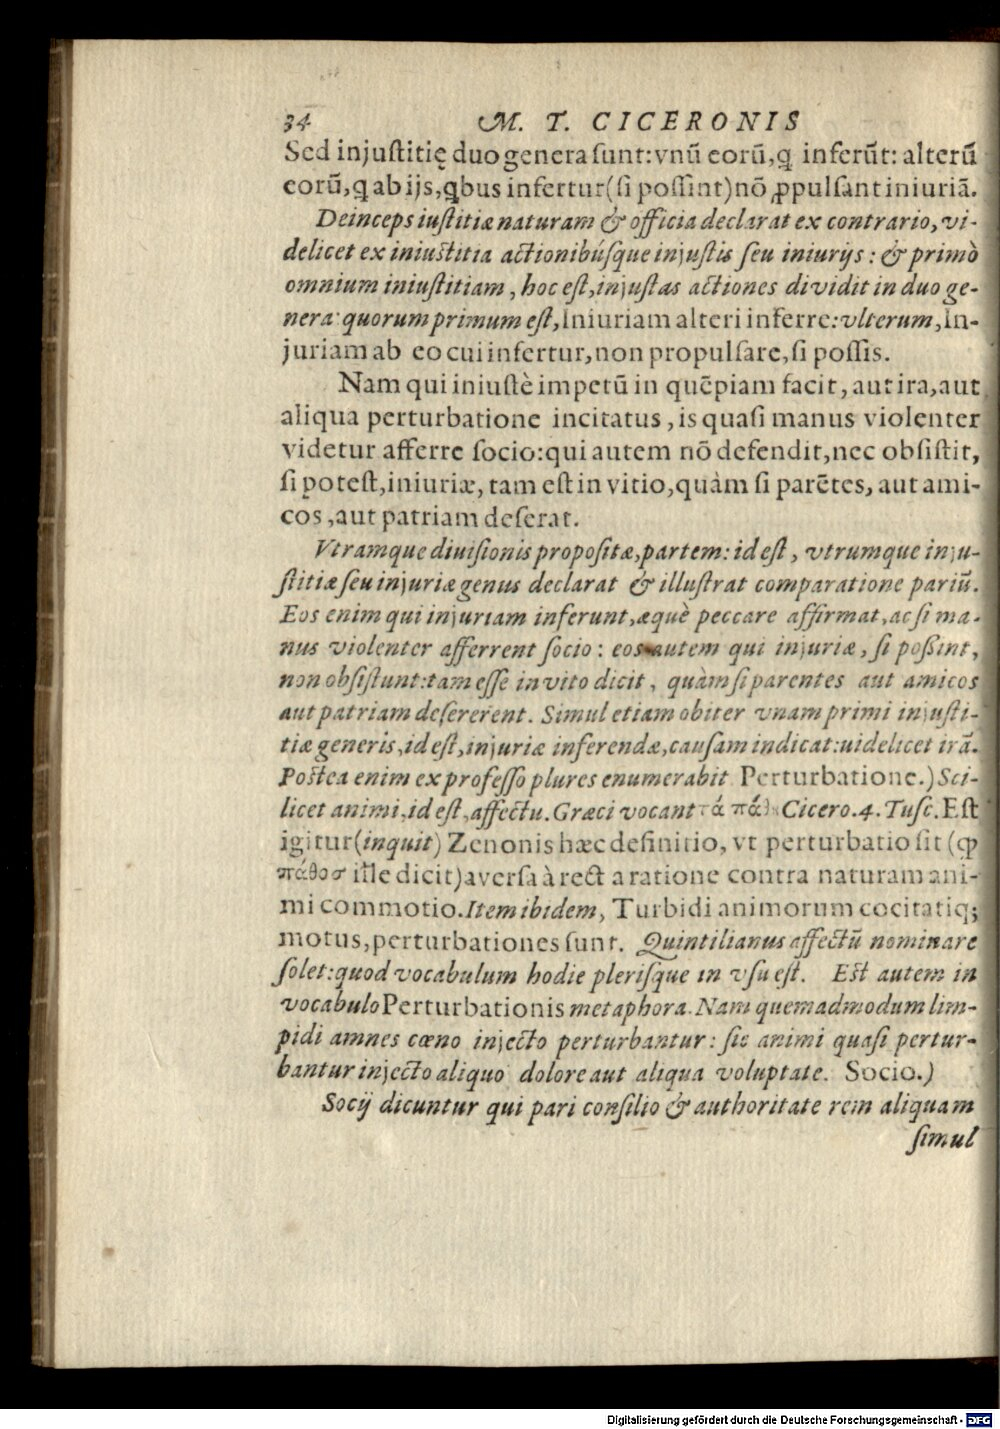 34 M. T. CICERONIS
Sed injuſtitię duo genera ſunt: vnū eorū, ꝗ inferūt: alterū
eorū, ꝗ ab ijs, ꝗbus infertur (ſi poſſint) nō ꝓpulſant iniuriā.
Deinceps iuſtitiæ naturam & officia declarat ex contrario, vi-
delicet ex iniuſtitia actionibúſque injuſtis ſeu iniurijs: & primò
omnium iniuſtitiam, hoc eſt, injuſtas actiones dividit in duo ge-
nera: quorum primum eſt, Iniuriam alteri inferre: vlterum, In-
juriam ab eo cui infertur, non propulſare, ſi poſſis.
Nam qui iniuſtè impetū in quēpiam facit, aut ira, aut
aliqua perturbatione incitatus, is quaſi manus violenter
videtur afferre ſocio: qui autem nō defendit, nec obſiſtit,
ſi poteſt, iniuriæ, tam eſt in vitio, quàm ſi parētes, aut ami-
cos, aut patriam deſerat.
Vtramque diuiſionis propoſitæ, partem: id eſt, vtrumque inju-
ſtitiæ ſeu injuriæ genus declarat & illuſtrat comparatione pariū.
Eos enim qui injuriam inferunt, æquè peccare affirmat, ac ſi ma-
nus violenter afferrent ſocio: eos autem qui injuriæ, ſi poßint,
non obſiſtunt: tam eſſe in vito dicit, quàm ſi parentes aut amicos
aut patriam deſererent. Simul etiam obiter vnam primi injuſti-
tiæ generis, id eſt, injuriæ inferendæ, cauſam indicat: uidelicet irā.
Poſtea enim ex profeſſo plures enumerabit Perturbatione.) Sci-
licet animi, id eſt, affectu. Græci vocant τά πάθη Cicero. 4. Tuſc. Eſt
igitur (inquit) Zenonis hæc definitio, vt perturbatio ſit (ꝙ
πάθοσ ille dicit) averſa à recta ratione contra naturam ani-
mi commotio. Item ibidem, Turbidi animorum cōcitatiq;
motus, perturbationes ſunt. Quintilianus affectū nominare
ſolet: quod vocabulum hodie pleriſque in vſu eſt. Eſt autem in
vocabulo Perturbationis metaphora. Nam quemadmodum lim-
pidi amnes cœno injecto perturbantur: ſic animi quaſi pertur-
bantur injecto aliquo dolore aut aliqua voluptate. Socio.)
Socij dicuntur qui pari conſilio & authoritate rem aliquam
ſimul
Digitalisierung gefördert durch die Deutsche Forschungsgemeinschaft - DFG